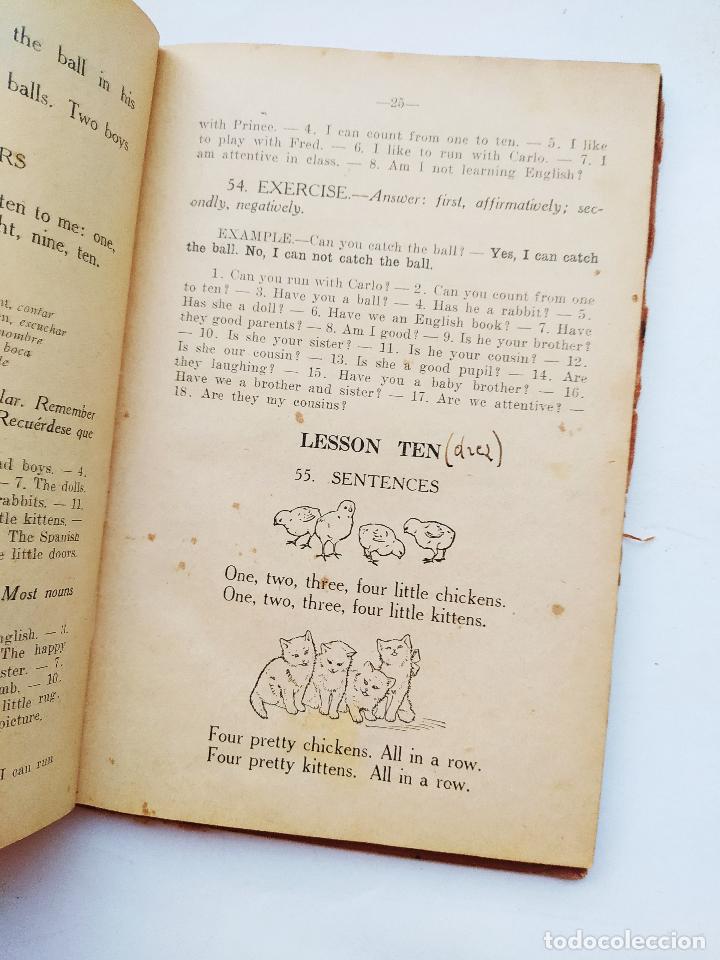 the ball in his
balls. Two boys
RS
ten to me: one,
ht, nine, ten.
contar
escuchar
nombre
boca
lar. Remember
Recuérdese que
ad boys. — 4.
— 7. The dolls.
rabbits. — 11.
tle kittens. —
The Spanish
e little doors.
Most nouns
nglish. — 3.
The happy
ster. — 7.
mb. — 10.
little rug.
picture.
I can run
—25—
with Prince. — 4. I can count from one to ten. — 5. I like
to play with Fred. — 6. I like to run with Carlo. — 7. I
am attentive in class. — 8. Am I not learning English?
54. EXERCISE.—Answer: first, affirmatively; sec-
ondly, negatively.
EXAMPLE.—Can you catch the ball? — Yes, I can catch
the ball. No, I can not catch the ball.
1. Can you run with Carlo? — 2. Can you count from one
to ten? — 3. Have you a ball? — 4. Has he a rabbit? — 5.
Has she a doll? — 6. Have we an English book? — 7. Have
they good parents? — 8. Am I good? — 9. Is he your brother?
— 10. Is she your sister? — 11. Is he your cousin? — 12.
Is she our cousin? — 13. Is she a good pupil? — 14. Are
they laughing? — 15. Have you a baby brother? — 16.
Have we a brother and sister? — 17. Are we attentive? —
18. Are they my cousins?
LESSON TEN (diez)
55. SENTENCES
One, two, three, four little chickens.
One, two, three, four little kittens.
Four pretty chickens. All in a row.
Four pretty kittens. All in a row.
todocoleccion.net